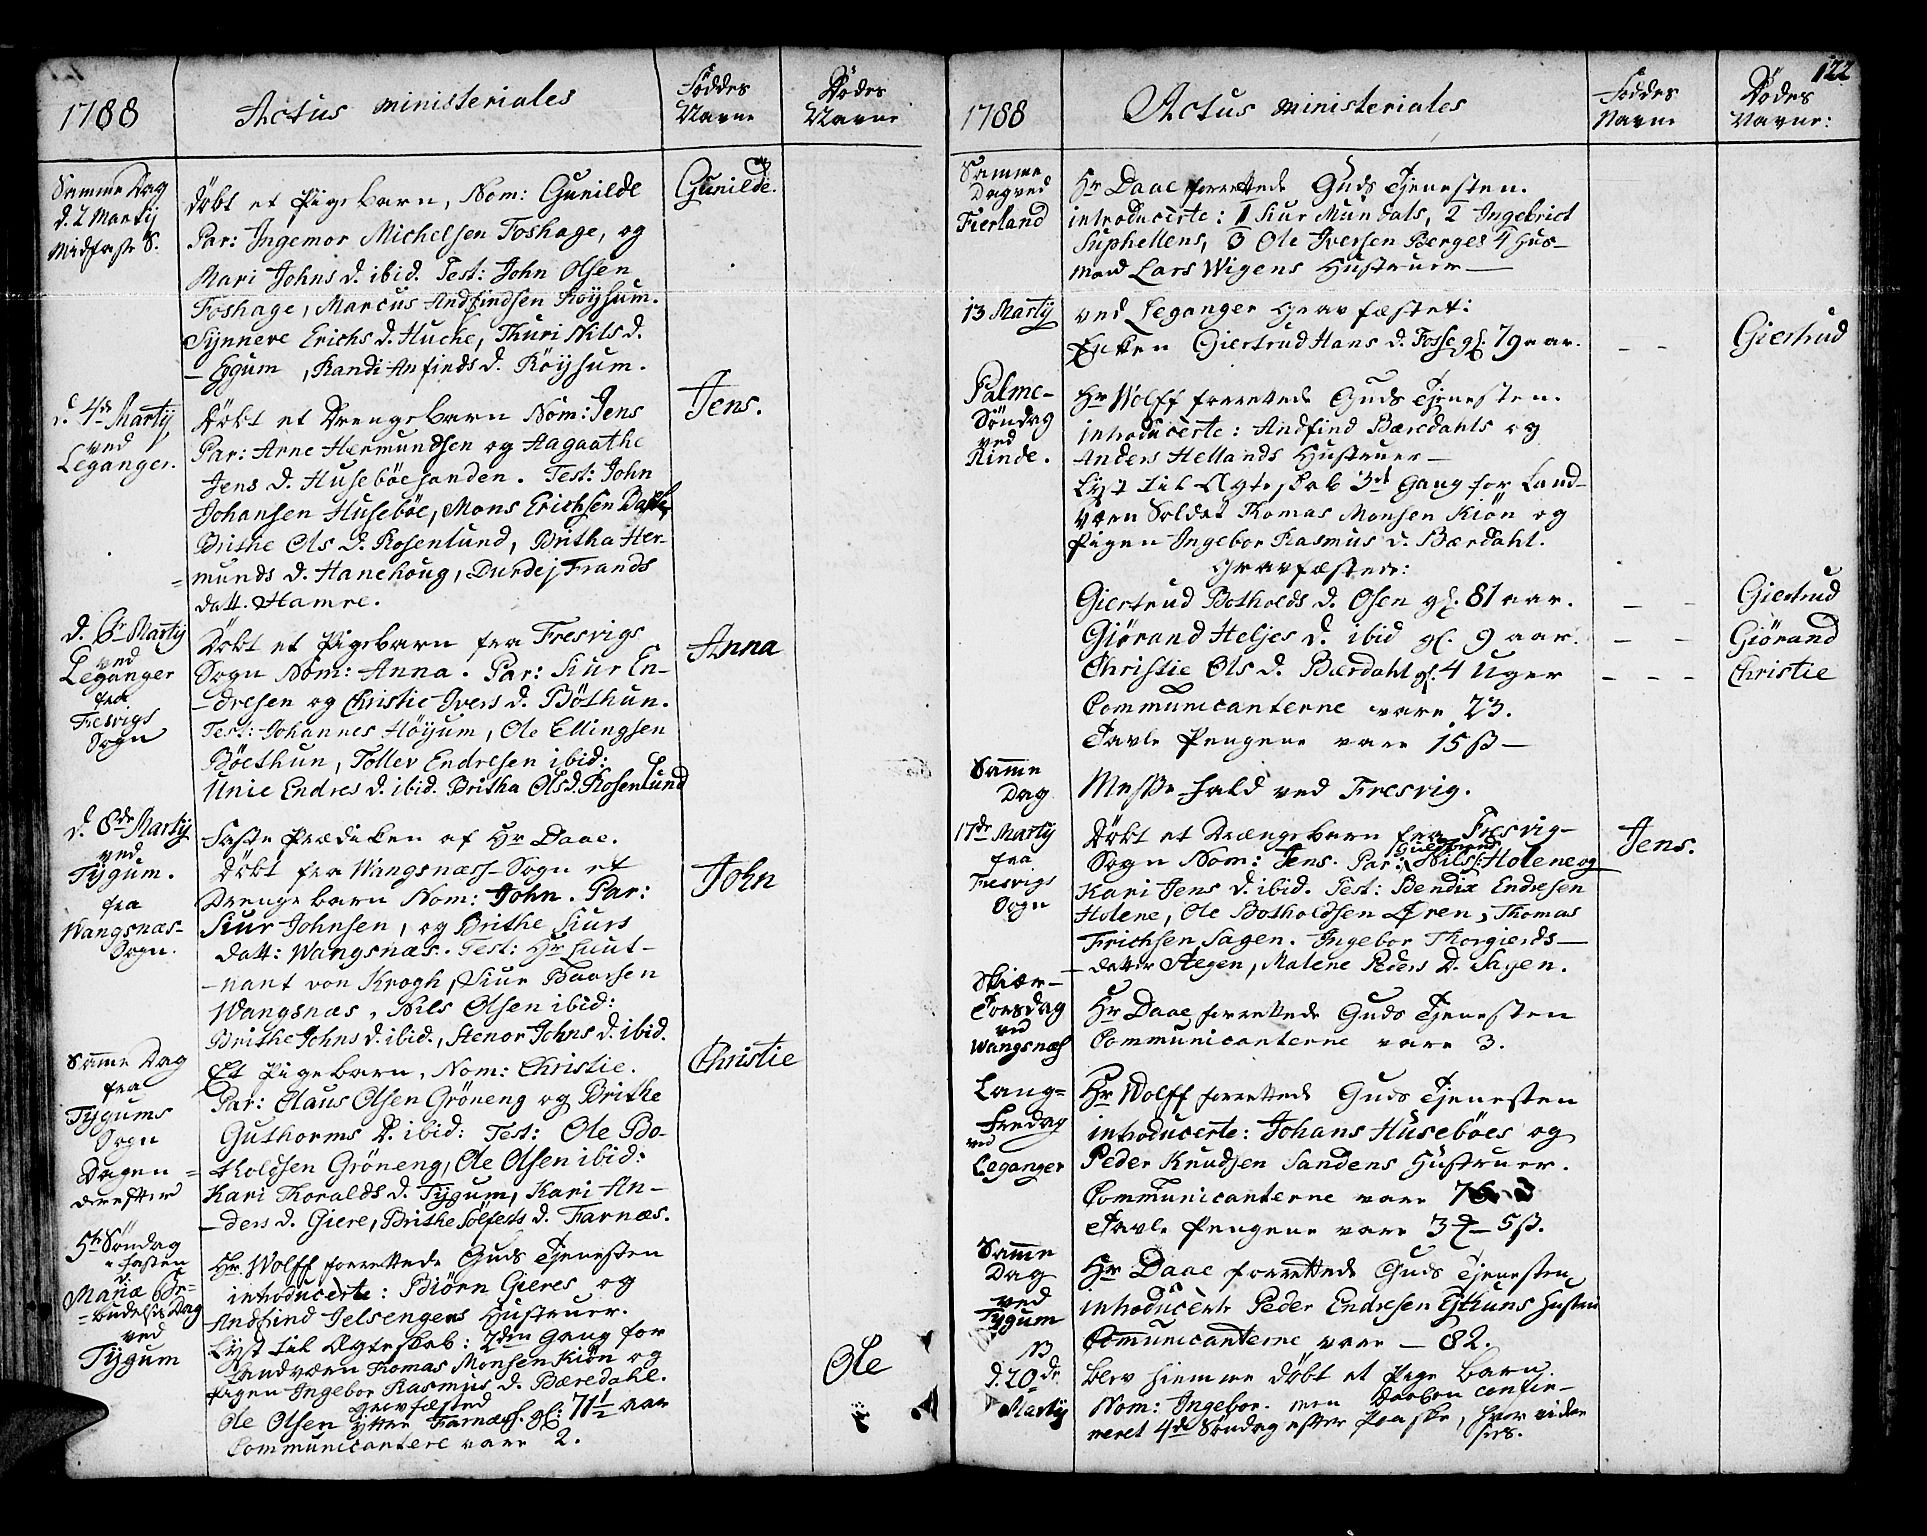 1788
Actus ministeriales
Föddes
Navne
Dödes
Navne
Samme Dag
d. 2 Martij
Midfaste S.
Döbt et Pigebarn, Nom: Gunilde
Par: Ingemor Michelsen Foshage, og
Mari Johns d. ibid. Test: John Olsen
Foshage, Marcus Andfindsen Röysum.
Synneve Erichs d. Huche, Thuri Nils d.
Eggum, Randi Anfinds d. Röysum.
Gunilde.
d. 4de Martij
ved
Leganger.
Döbt et Drengebarn Nom: Jens
Par: Arne Hermundsen og Aagaathe
Jens d. Huseböesanden. Test: John
Johansen Huseböe, Mons Erichsen
Brithe Ols d. Rosenlund, Britha Her-
munds d. Hanehoug, Durdej Frands
datt. Hamre.
Jens.
d. 6te Martij
ved
Leganger
fra
Fresvigs
Sogn
Döbt et Pigebarn fra Fresvigs
Sogn Nom: Anna. Par: Siur En-
-dresen og Christie Ivers d. Böthun.
Test: Johannes Höyum, Ole Ellingsen
Böethun, Tollev Endresen ibid:
Unie Endres d. ibid. Britha Ols d. Rosenlund
Anna
d. 8de Martij
ved
Tygum.
fra
Wangsnæs-
Sogn.
Faste Prædiken af Hr Daae.
Döbt fra Wangsnæss-Sogn et
Drengebarn Nom: John. Par:
Siur Johnsen, og Brithe Siurs
datt: Wangsnæs. Test: Hr Lieut-
-nant von Krogh, Siur Baarsen
Wangsnæs, Nils Olsen ibid:
Brithe Johns d. ibid., Stenor Johns d. ibid.
John
Samme Dag
fra
Tygums
Sogn
Dagen
derefter
Et Pigebarn, Nom: Christie.
Par: Claus Olsen Gröneng og Brithe
Guthorms d. ibid: Test: Ole Bo-
tholdsen Gröneng, Ole Olsen ibid:
Kari Thoralds d. Tygum, Kari An-
-ders d. Giere, Brithe Sölfests d. Farnæs.
Christie
5te Söndag
i Fasten
Mariæ Be-
-budelses Dag
ved
Tygum
Hr Wolff forrettede Guds Tjenesten
introducerte: Biörn Gieres og
Andfind Jelsengens Hustruer.
Lyst til Ægteskab: 2den Gang for
Landværn Thomas Monsen Kiön og
Pigen Ingebor Rasmus d. Bæredahl.
gravfæsted
Ole Olsen Yttre Farnæss. gl: 71½ aar
Communicantere vare 2.
Ole
122
1788
Actus ministeriales
Föddes
Navne
Dödes
Navne:
Samme
Dag ved
Fierland
Hr Daae forrettede Guds Tjenesten.
introducerte: 1 Siur Mundals, 2 Ingebrict
Suphellens, 3 Ole Iversen Berges 4 Hus-
mand Lars Wigens Hustruer—
13 Martij
ved Leganger Gravfæstet:
Encken Giertrud Hans d. Fosse gl. 79 aar.
Giertrud
Palme-
Söndag
ved
Rinde.
Hr Wolff forrettede Guds Tjenesten.
introducerte: Andfind Bæredahls og
Anders Hellands Hustruer—
Lyst til Ægteskab 3de Gang for Land-
væn Soldat Thomas Monsen Kiön og
Pigen Ingebor Rasmus d. Bærdahl.
Gravfæstede:
Giertrud Botholds d. Osen gl. 81 aar.
Giörand Heljes d. ibid gl. 9 aar.
Christie Ols d. Bærdahl gl. 4 Uger
Communicanterne vare 23.
Tavle Pengene vare 15 ß—
Giertrud
Giörand
Christie
Samme
Dag
Messe-Fald ved Fresvig.
17de Martij
fra
Fresvigs
Sogn
Döbt et Drænge barn fra Fresvig-
Sogn Nom: Jens. Par: Nils Holene og
Kari Jens d. ibid. Test: Bendix Endresen
Holene, Ole Botholdsen Øren, Thomas
Erichsen Sagen. Ingebor Thorgierds—
datter Aegen, Malene Peders D. Sagen.
Jens.
Skiær-
Torsdag
ved
Wangsnæss
Hr Daae forrettede Guds Tjenesten
Communicanterne vare 3.
Lang=
Fredag
ved
Leganger
Hr Wolff forrettede Guds Tjenesten
introducerte: Johans Huseböes og
Peder Knudsen Sandens Hustruer.
Communicanterne vare
Tavle Pengene vare 3 — 5 ß.
Samme
Dag
ved
Tygum
Hr Daae forrettede Guds Tjenesten
introducerte Peder Endresen Ejthuns Hustru
Communicanterne vare — 82.
NB
d. 20de
Martij
blev hiemme döbt et Pige barn.
Nom: Ingebor. men Daaben confir-
meret 4de Söndag efter Paaske, hvor videre
sees.